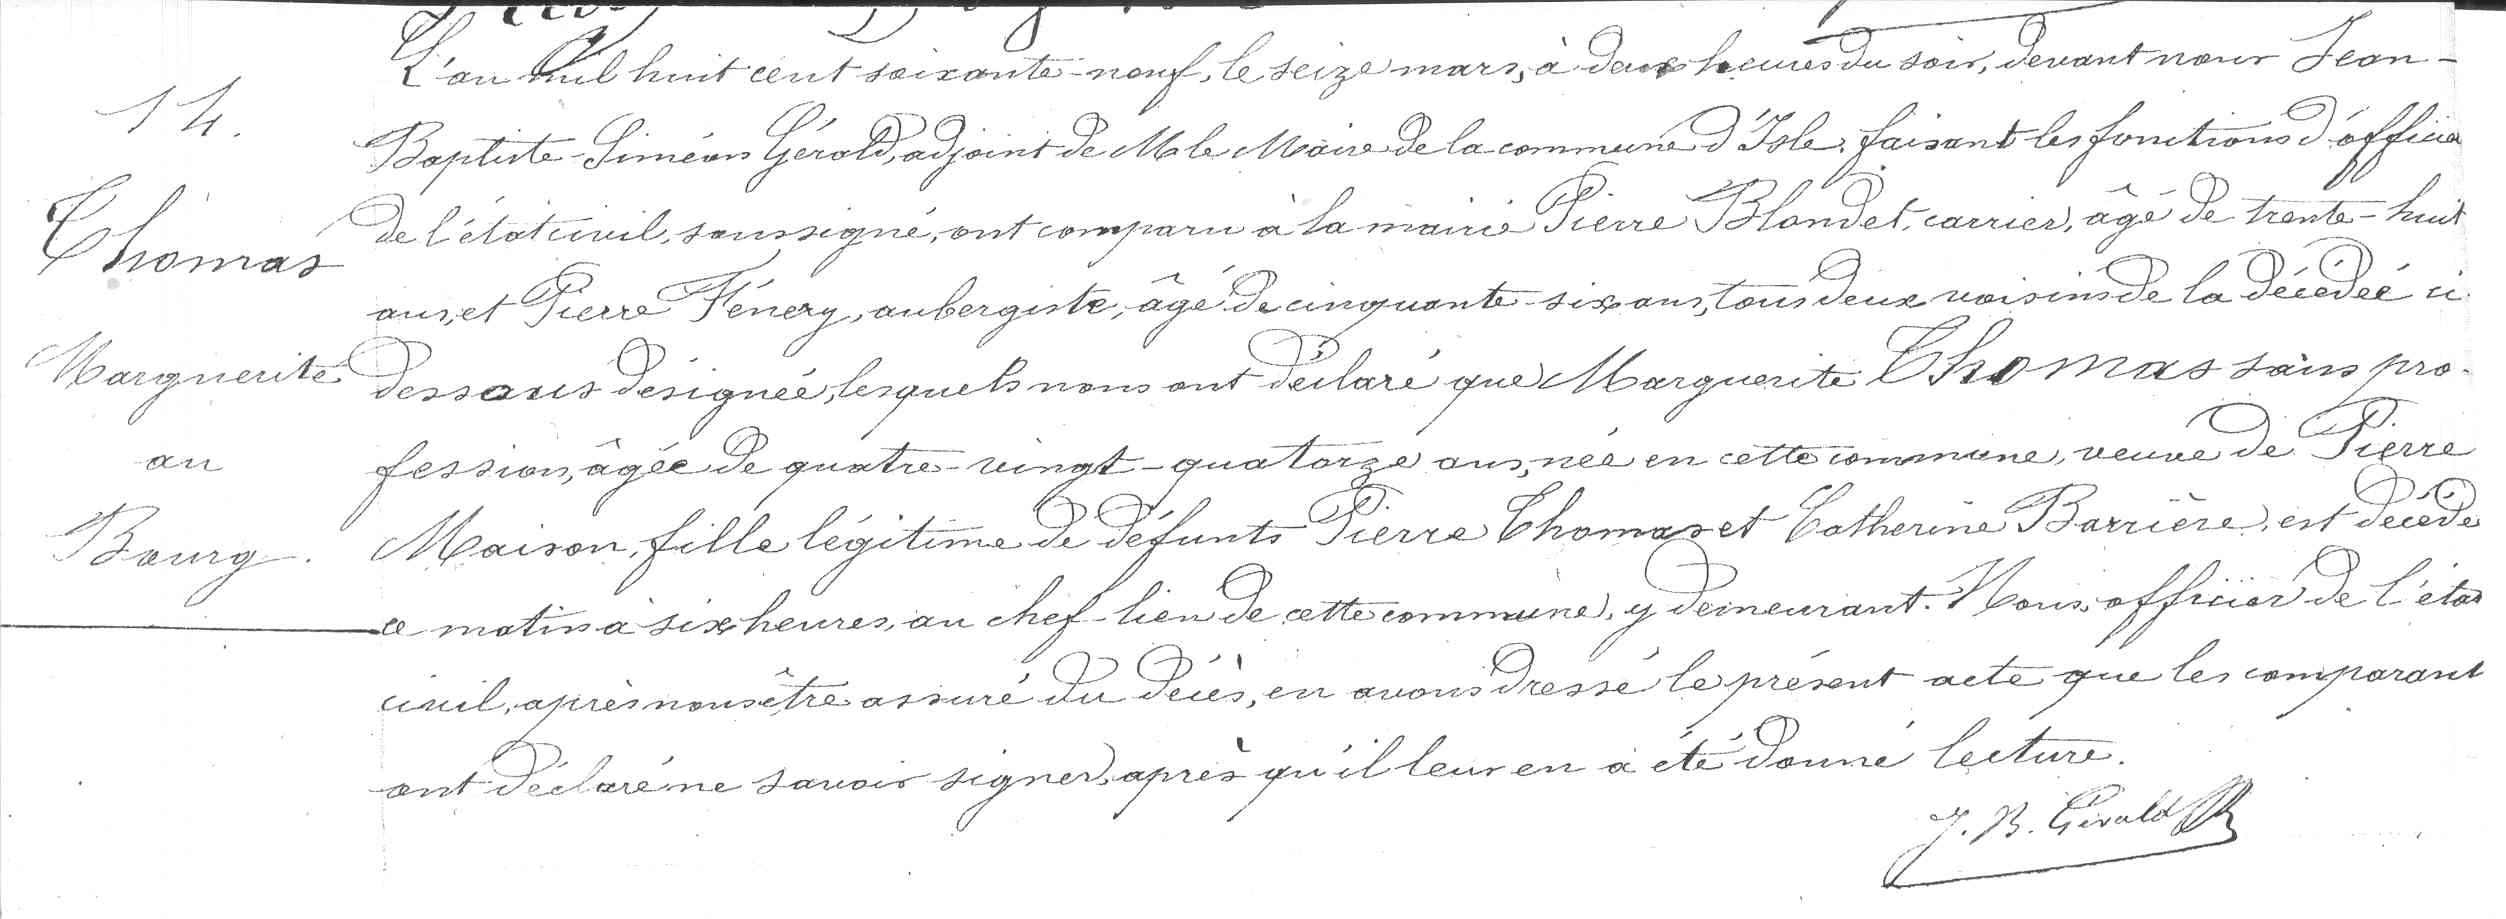 L'an mil huit cent soixante-neuf, le seize mars, à deux heures du soir, devant nous Jean-
14.
Baptiste-Siméon Gérald, adjoint de M le Maire de la commune d'Isle, faisant les fonctions d'officier
Thomas
de l'état civil, soussigné, ont comparu à la mairie Pierre Blondet, carrier, âgé de trente-huit
ans, et Pierre Fénery, aubergiste, âgé de cinquante-six ans, tous deux voisins de la décédée ci-
Marguerite
dessous désignée, lesquels nous ont déclaré que Marguerite Thomas sans pro-
au
fession, âgée de quatre-vingt-quatorze ans, née en cette commune, veuve de Pierre
Bourg.
Maison, fille légitime de défunts Pierre Thomas et Catherine Barrière, est décédé
ce matin à six heures, au chef-lieu de cette commune, y demeurant. Nous, officier de l'état
civil, après nous être assuré du décès, en avons dressé le présent acte que les comparant
ont déclaré ne savoir signer, après qu'il leur en a été donné lecture.
J. B. Gérald